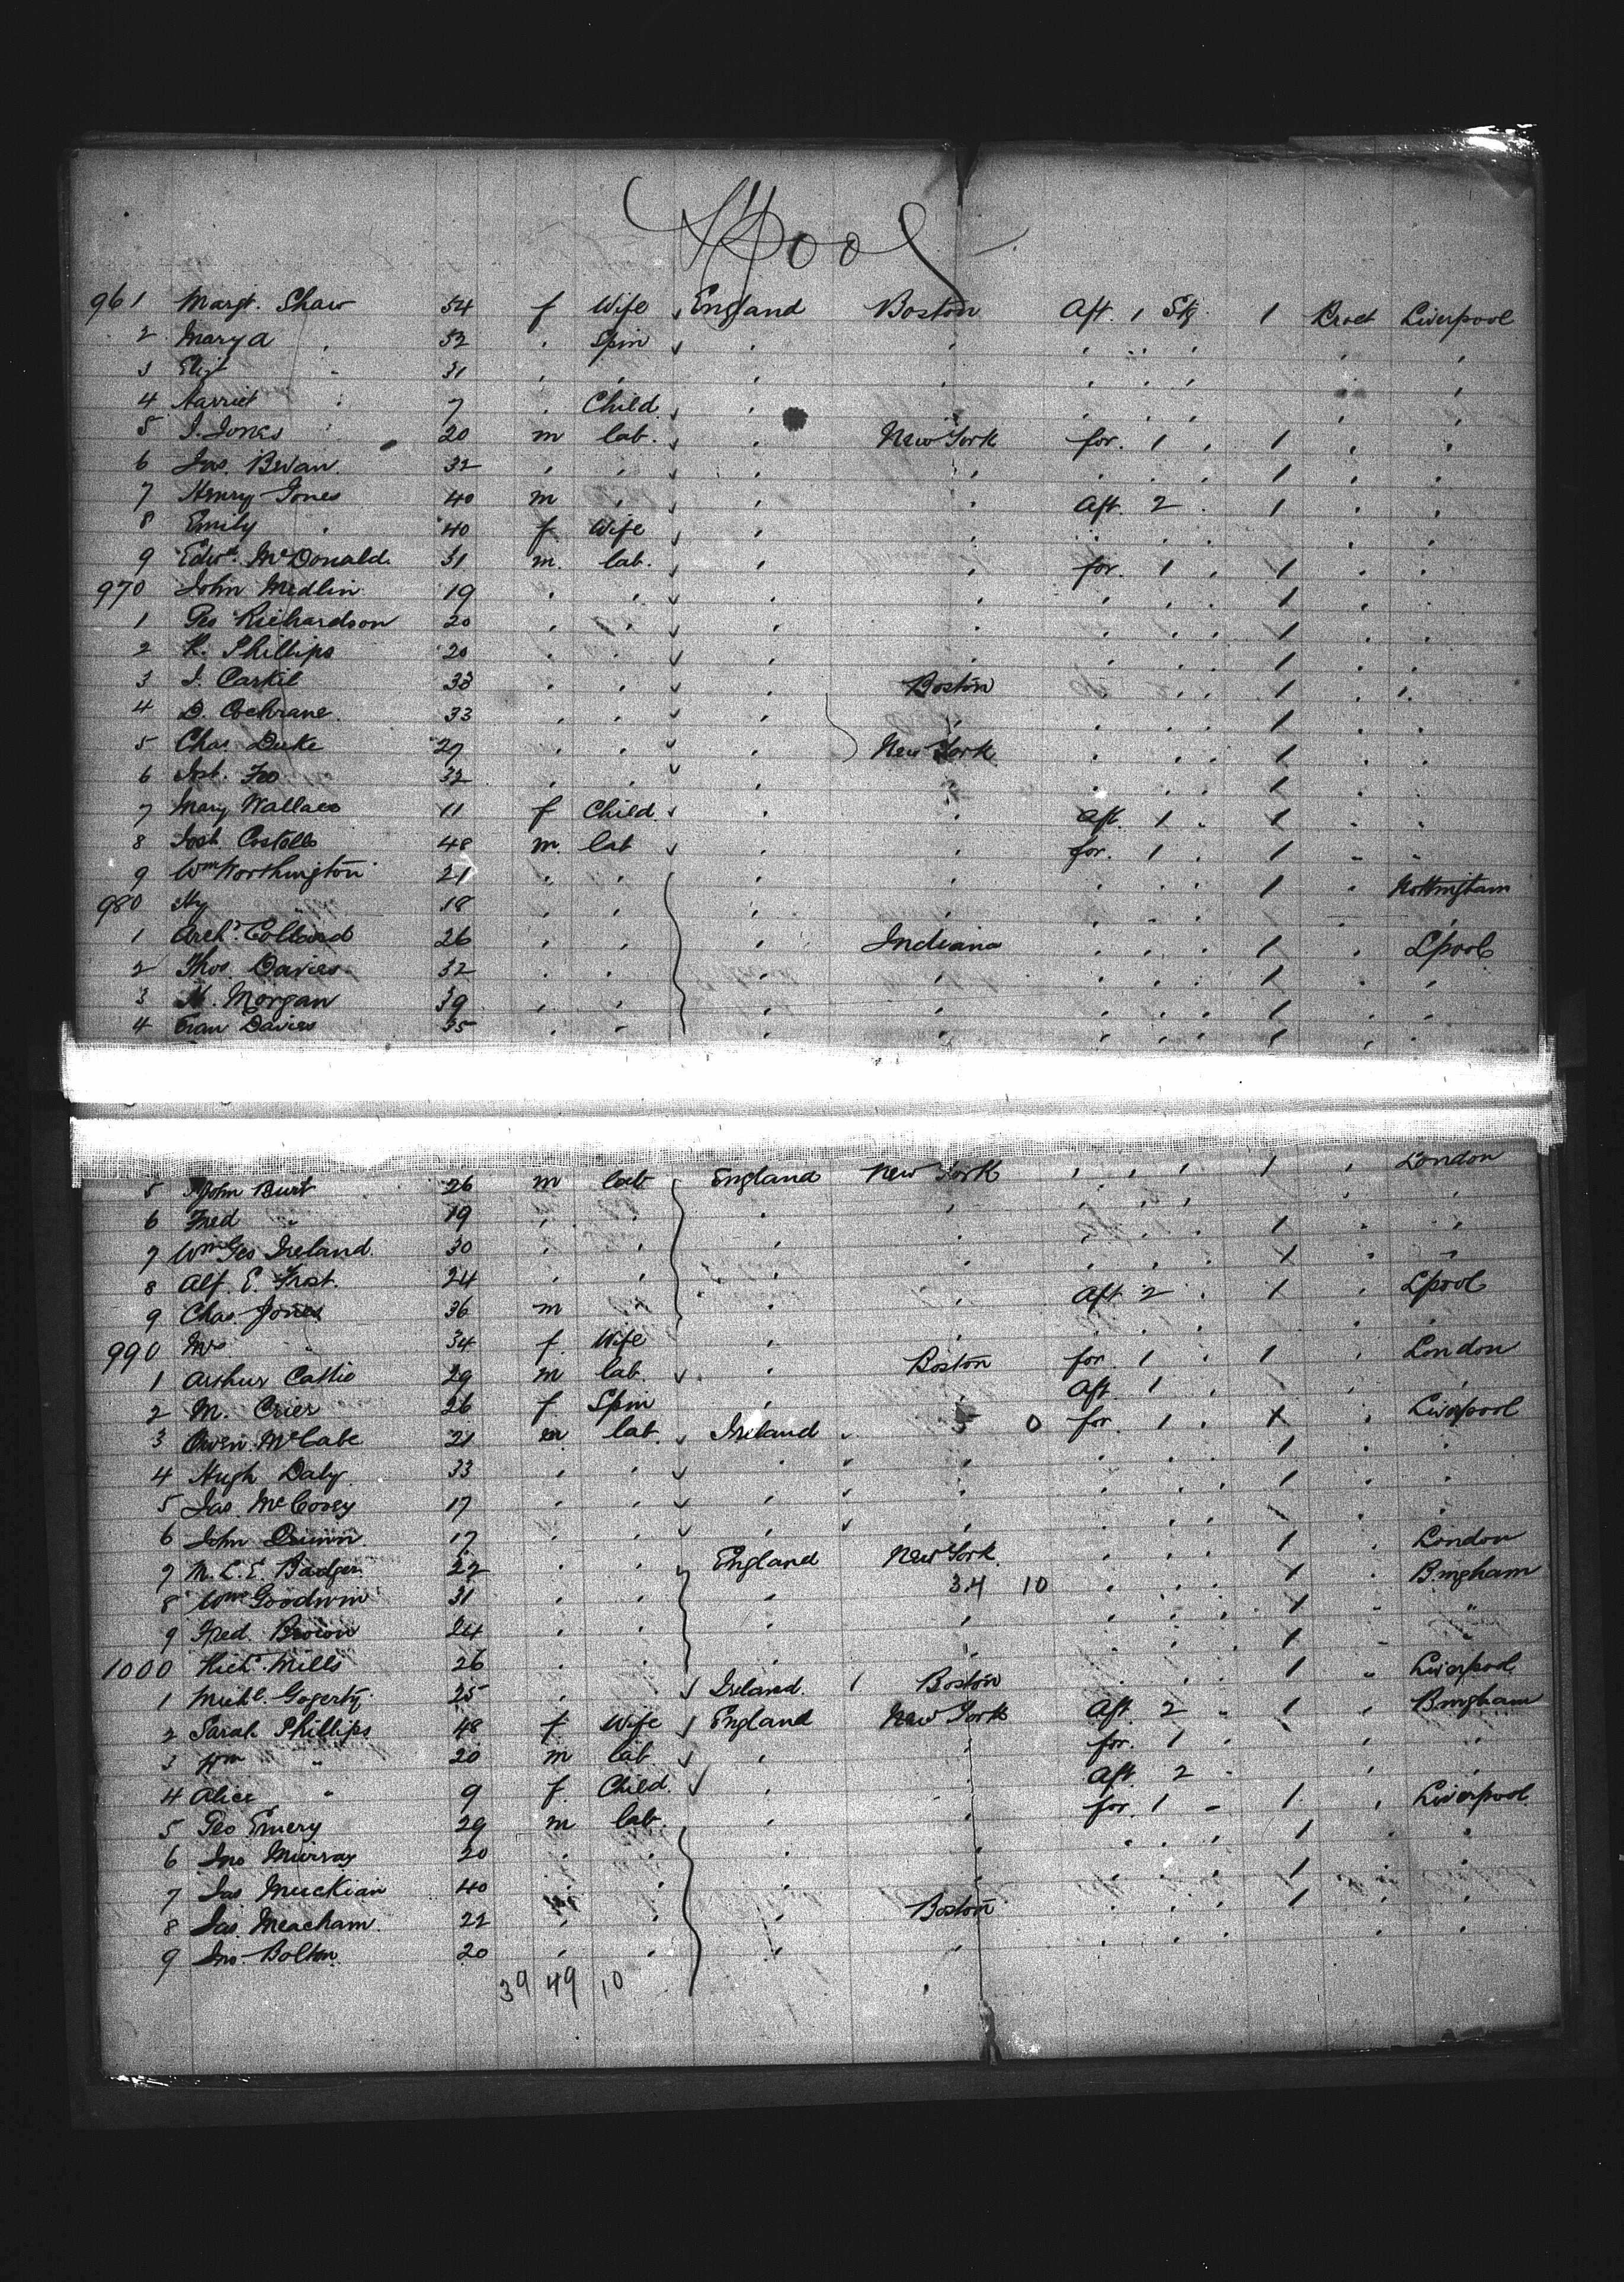 L'pool
961 Margt. Shaw 54 f Wife England Boston Aft. 1 Stg. 1 Liverpool
2 Mary A " 32 " Spin " " " " " " "
3 Eliz " 31 " " " " " " " " "
4 Harriet " 7 " Child " " " " " " "
5 J. Jones 20 m lab. " New York for. 1 " 1 " "
6 Jas. Bevan 32 " " " " " " " 1 " "
7 Henry Jones 40 m " " " Aft. 2 " 1 " "
8 Emily " 40 f Wife " " " " " " "
9 Edwd. McDonald 31 m. lab. " " for. 1 " 1 " "
970 John Medlin 19 " " " " " " " 1 " "
1 Geo Richardson 20 " " " " " " " 1 " "
2 R. Phillips 20 " " " " " " " 1 " "
3 J. Carkil 33 " " " Boston " " " 1 " "
4 D. Cochrane 33 " " " " " " " 1 " "
5 Chas. Duke 27 " " " New York " " " 1 " "
6 32 " " " " " " " 1 " "
7 Mary Wallace 11 f Child " " Aft. 1 " 1 " "
8 Josh. Costello 48 m. lab " " for. 1 " 1 " "
9 Wm Worthington 21 " " " " " " " 1 " Nottingham
980 Hy " 18 " " " " " " " " "
1 Archd. Collard 26 " " " Indiana " " " 1 " Lpool
2 Thos. Davies 32 " " " " " " " 1 " "
3 H. Morgan 39 " " " " " " " 1 " "
4 Evan Davies 35 " " " " " " " 1 " "
5 John Burt 26 m lab England New York " " " 1 " London
6 Fred " 19 " " " " " " " " "
7 Wm Geo Ireland 30 " " " " " " " 1 " "
8 Alf. E. Frost. 24 " " " " " " " 1 " "
9 Chas. Jones 36 m " " Aft 2 " 1 " Lpool
990 Mrs " 34 f Wife " " " " " " "
1 Arthur Cattle 29 m lab. " Boston for 1 " 1 " London
2 M. Crier 26 f Spin " " Aft 1 " " "
3 Owen McCabe 21 m lab. Ireland 5 0 for. 1 " 1 " Liverpool
4 Hugh Daly 33 " " " " " " " 1 " "
5 Jas. 17 " " " " " " " 1 " "
6 John Dunn 17 " " " " " " " " "
7 M. C. E. Badger 22 " " England New York " " " 1 " London
8 Wm Goodwin 31 " " " 34 10 " " " 1 " B'mgham
9 Fred. Brown 24 " " " " " " " 1 "
1000 Richd. Mills 26 " " " " " " " 1 " "
1 Michl. Gogerty 25 " Ireland 1 Boston " " " 1 " Liverpool
2 Sarah Phillips 48 f Wife England New York Aft 2 " 1 " Bmgham
3 Wm " 20 m lab " " for. 1 " " "
4 Alice " 9 f. Child " " Aft 2 " " "
5 Geo Emery 29 m lab. " " for. 1 " 1 " Liverpool
6 Jno Murray 20 " " " " " " " 1 " "
7 Jas Muckian 40 " " " " " " " 1 " "
8 Jas. Meacham 22 " " " Boston " " " 1 " "
9 Jno. Bolton 20 " " " " " " " " "
39 49 10